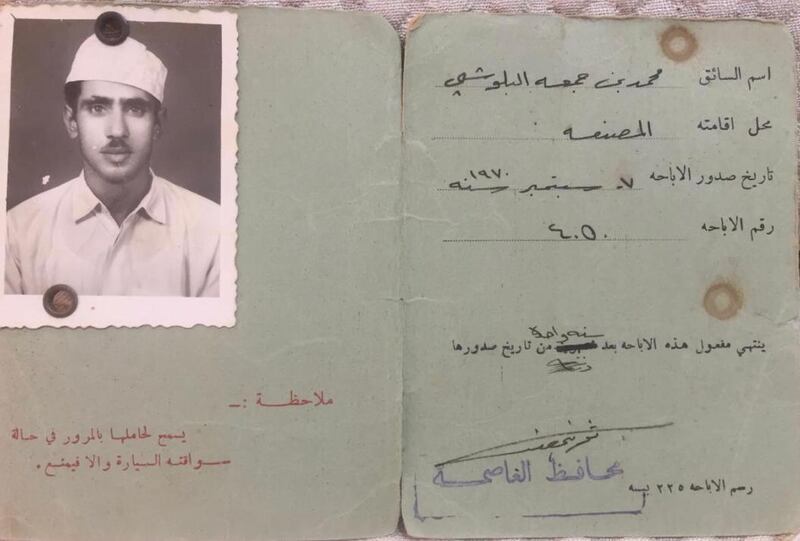 اسم السائق محمد بن جمعه البلوشي
محل اقامته المصنعه
تاريخ صدور الاباحه ٧- سبتمبر سنه ١٩٧٠
رقم الاباحه ٤٠٥٠
سنه واحدة
ينتهي مفعول هذه الاباحه بعد من تاريخ صدورها
محافظ العاصمة
رسم الاباحه ٢٢٥ بيسه
ملاحظة :ــ
يسمح لحاملها بالمرور في حالة
سواقته السيارة والا فيمنع.